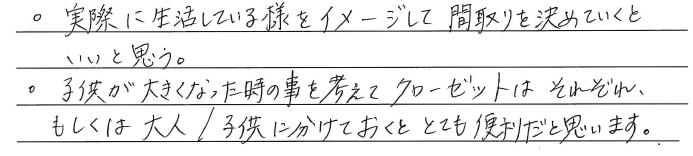 ○ 実際に生活している様をイメージして間取りを決めていくと
いいと思う。
○ 子供が大きくなった時の事を考えてクローゼットはそれぞれ、
もしくは大人/子供に分けておくととても便利だと思います。